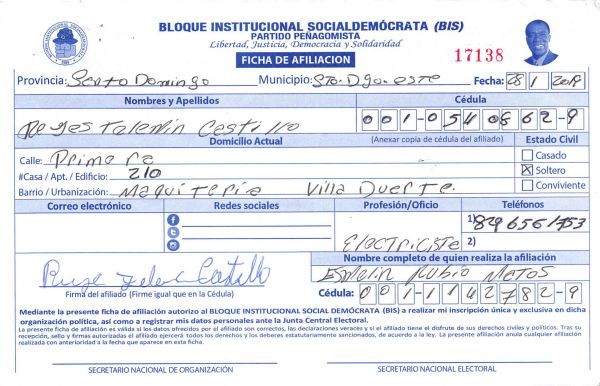 BLOQUE INSTITUCIONAL SOCIALDEMÓCRATA (BIS)
PARTIDO PEÑAGOMISTA
Libertad, Justicia, Democracia y Solidaridad
FICHA DE AFILIACION
17138
Provincia: Santo Domingo Municipio: Sto. Dgo. este Fecha: 28/1/2018
Nombres y Apellidos Cédula
Reyes Tolentin Castillo 001-0540862-9
Domicilio Actual (Anexar copia de cédula del afiliado) Estado Civil
Calle: Primera Casado
#Casa / Apt. / Edificio: 210 Soltero
Barrio / Urbanización: Maquiteria Villa Duarte. Conviviente
Correo electrónico Redes sociales Profesión/Oficio Teléfonos
1) 8296561753
Electricista 2)
Nombre completo de quien realiza la afiliación
Castillo Rubio Matos
Firma del afiliado (Firme igual que en la Cédula) Cédula: 001-1142782-9
Mediante la presente ficha de afiliación autorizo al BLOQUE INSTITUCIONAL SOCIAL DEMÓCRATA (BIS) a realizar mi inscripción única y exclusiva en dicha
organización política, así como a registrar mis datos personales ante la Junta Central Electoral.
La presente ficha de afiliación es válida si los datos ofrecidos por el afiliado son correctos, las declaraciones veraces y si el afiliado tiene el disfrute de sus derechos civiles y políticos. Tras su
recepción, sello y firmas autorizadas el afiliado ejercerá todos los derechos y los deberes estatutariamente sancionados, de acuerdo a la ley. La presente afiliación anula cualquier afiliación
realizada con anterioridad a la fecha que aparece en esta ficha.
SECRETARIO NACIONAL DE ORGANIZACIÓN SECRETARIO NACIONAL ELECTORAL